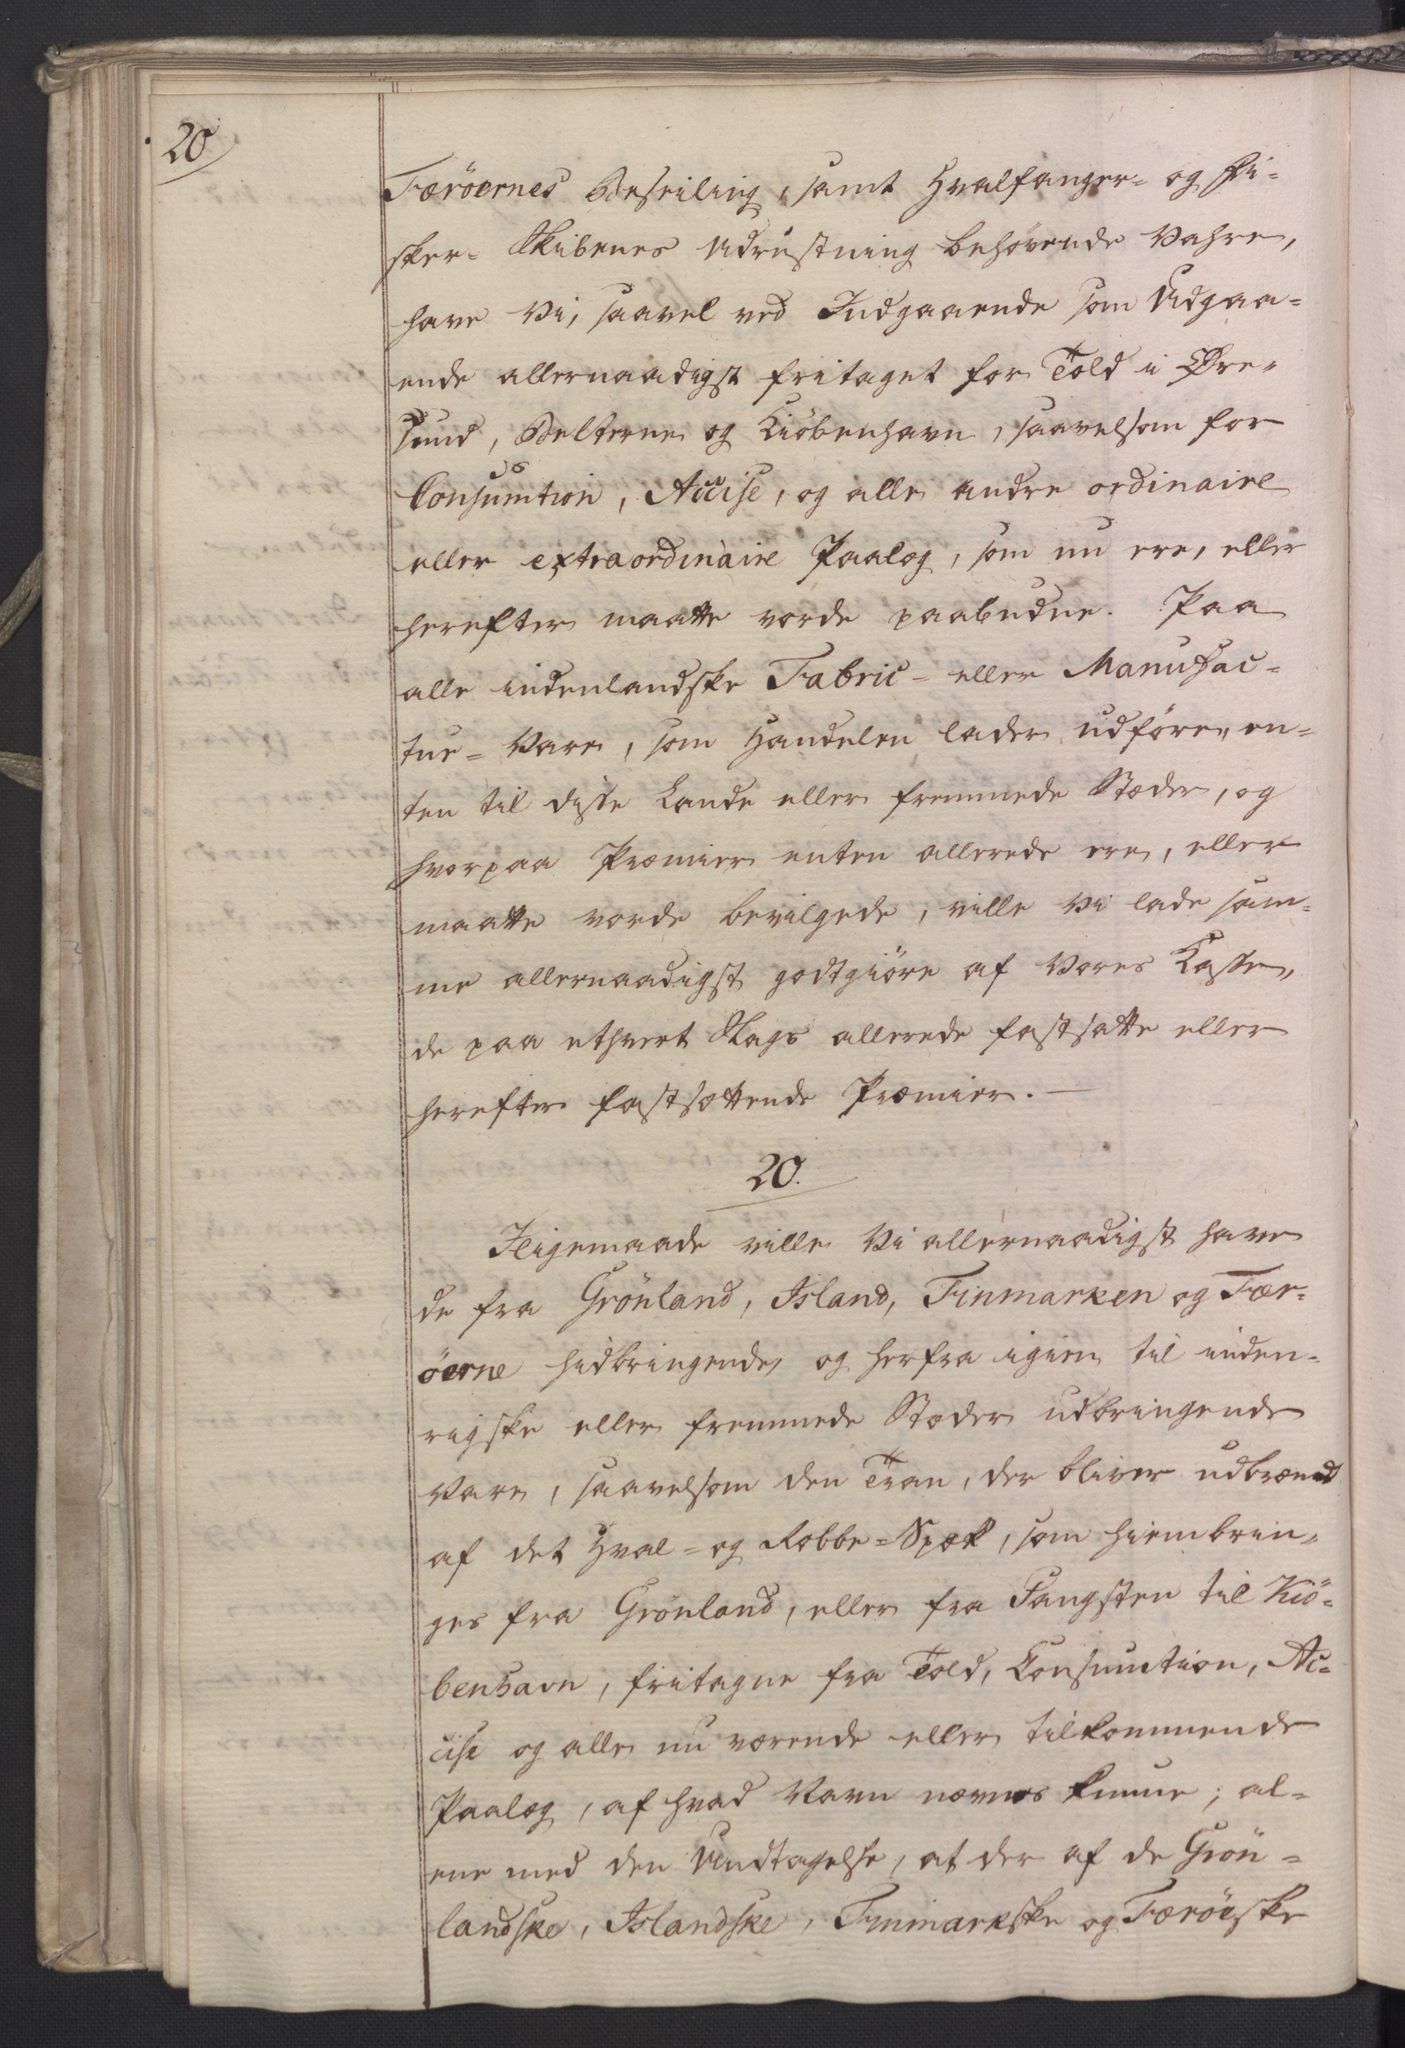 20
Færöernes Beseiling, samt Hvalfanger- og Fi-
sker- Skibenes Udrustning behøvende Vahre,
have Vi, saavel ved Indgaaende som Udgaa-
ende allernaadigst fritaget for Told i Øre-
sund, Belterne og Kiöbenhavn, saavelsom for
Consumtion, Accise, og alle andre ordinaire
eller extraordinaire Paalæg, som nu ere, eller
herefter maatte vorde paabudne. Paa
alle indenlandske Fabric- eller Manufac-
tur- Vare, som Handelen lader udföre, en-
ten til disse Lande eller fremmede Stæder, og
hvorpaa Præmier enten allerede ere, eller
maatte vorde bevilgede, ville Vi lade sam-
me allernaadigst godtgiöre af Vores Casse,
de paa ethvert Slags allerede fastsatte eller
herefter fastsættende Præmier. —
20.
Ligemaade ville Vi allernaadigst have
de fra Grönland, Island, Finmarken og Fær-
öerne hidbringende, og herfra igien til inden-
rigske eller fremmede Stæder udbringende
Vare, saavelsom den Tran, der bliver udbrændt
af det Hval- og Robbe-Spæk, som hiembrin-
ges fra Grönland, eller fra Fangsten til Kiö-
benhavn, fritagne fra Told, Consumtion, Ac-
cise og alle nu værende eller tilkommende
Paalæg, af hvad Navn nævnes kunne; al-
ene med den Undtagelse, at der af de Grön-
landske, Islandske, Finmarkske og Færöeske